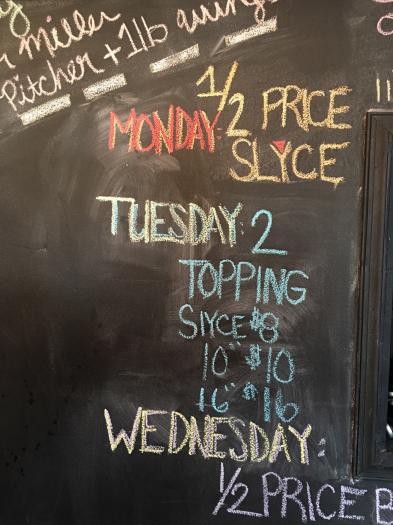 miller
Pitcher + 1lb wings
MONDAY: 1/2 PRICE
SLYCE
TUESDAY: 2
TOPPING
SLYCE $8
10" $10
16" $16
WEDNESDAY:
1/2 PRICE B